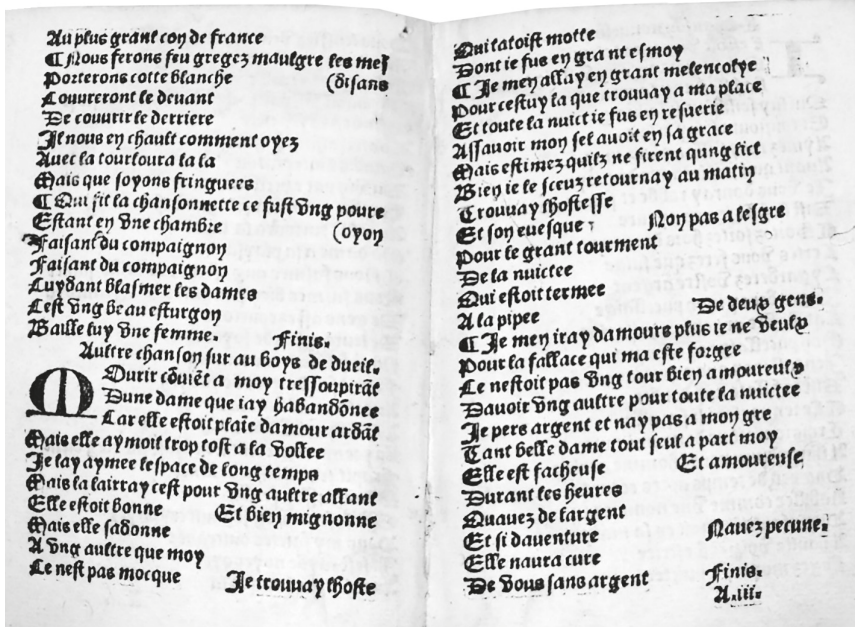 Au plus grant coy de france
¶ Nous ferons feu gregez maulgre les mes
Porterons cotte blanche (disans
Couureront le deuant
De couurir le derriere
Il nous en chault comment oyez
Auec la tourloura la la
Mais que soyons fringuees
¶ Qui fit la chansonnette ce fust vng poure
Estant en vne chambre (oyon
Faisant du compaignon
Faisant du compaignon
Cuydant blasmer les dames
Cest vng beau esturgon
Baille luy vne femme. Finis.
Aultre chanson sur au boys de dueil.
Mourir cõuiẽt a moy tressoupirãt
Dune dame que iay habandõnee
Car elle estoit plaĩe damour ardãt
Mais elle aymoit trop tost a la vollee
Je lay aymee lespace de long temps
Mais la lairray cest pour vng aultre allant
Elle estoit bonne Et bien mignonne
Mais elle sadonne
A vng aultre que moy
Ce nest pas mocque Je trouuay lhoste
Qui latoist motte
Dont ie fus en gra nt esmoy
¶ Je men allay en grant melencolye
Pour cestuy la que trouuay a ma place
Et toute la nuict ie fus en resuerie
Assauoir mon sel auoit en sa grace
Mais estimez quilz ne firent qung lict
Bien ie le sceuz retournay au matin
Trouuay lhostesse
Et son euesque Non pas alesgre
Pour le grant tourment
De la nuictee
Qui estoit termee
A la pipee De deux gens.
¶ Je men iray damours plus ie ne veulx
Pour la fallace qui ma este forgee
Ce nestoit pas vng tour bien amoureulx
Dauoir vng aultre pour toute la nuictee
Je pers argent et nay pas a mon gre
Tant belle dame tout seul a part moy
Elle est facheuse Et amoureuse
Durant les heures
Quauez de largent
Et si dauenture Nauez pecune.
Elle naura cure
De vous sans argent Finis.
A.iii.